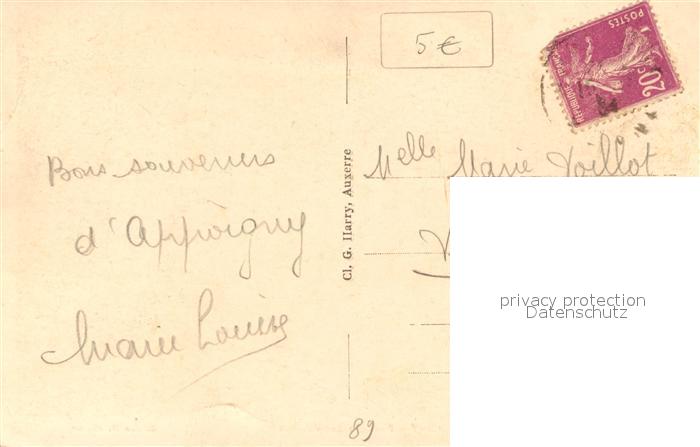 5 €
POSTES
REPUBLIQUE FRANÇAISE
20c
Bons souvenirs
d'Appoigny
Marie Louise
Cl. G. Harry, Auxerre
Melle Marie Voillot
privacy protection
Datenschutz
89